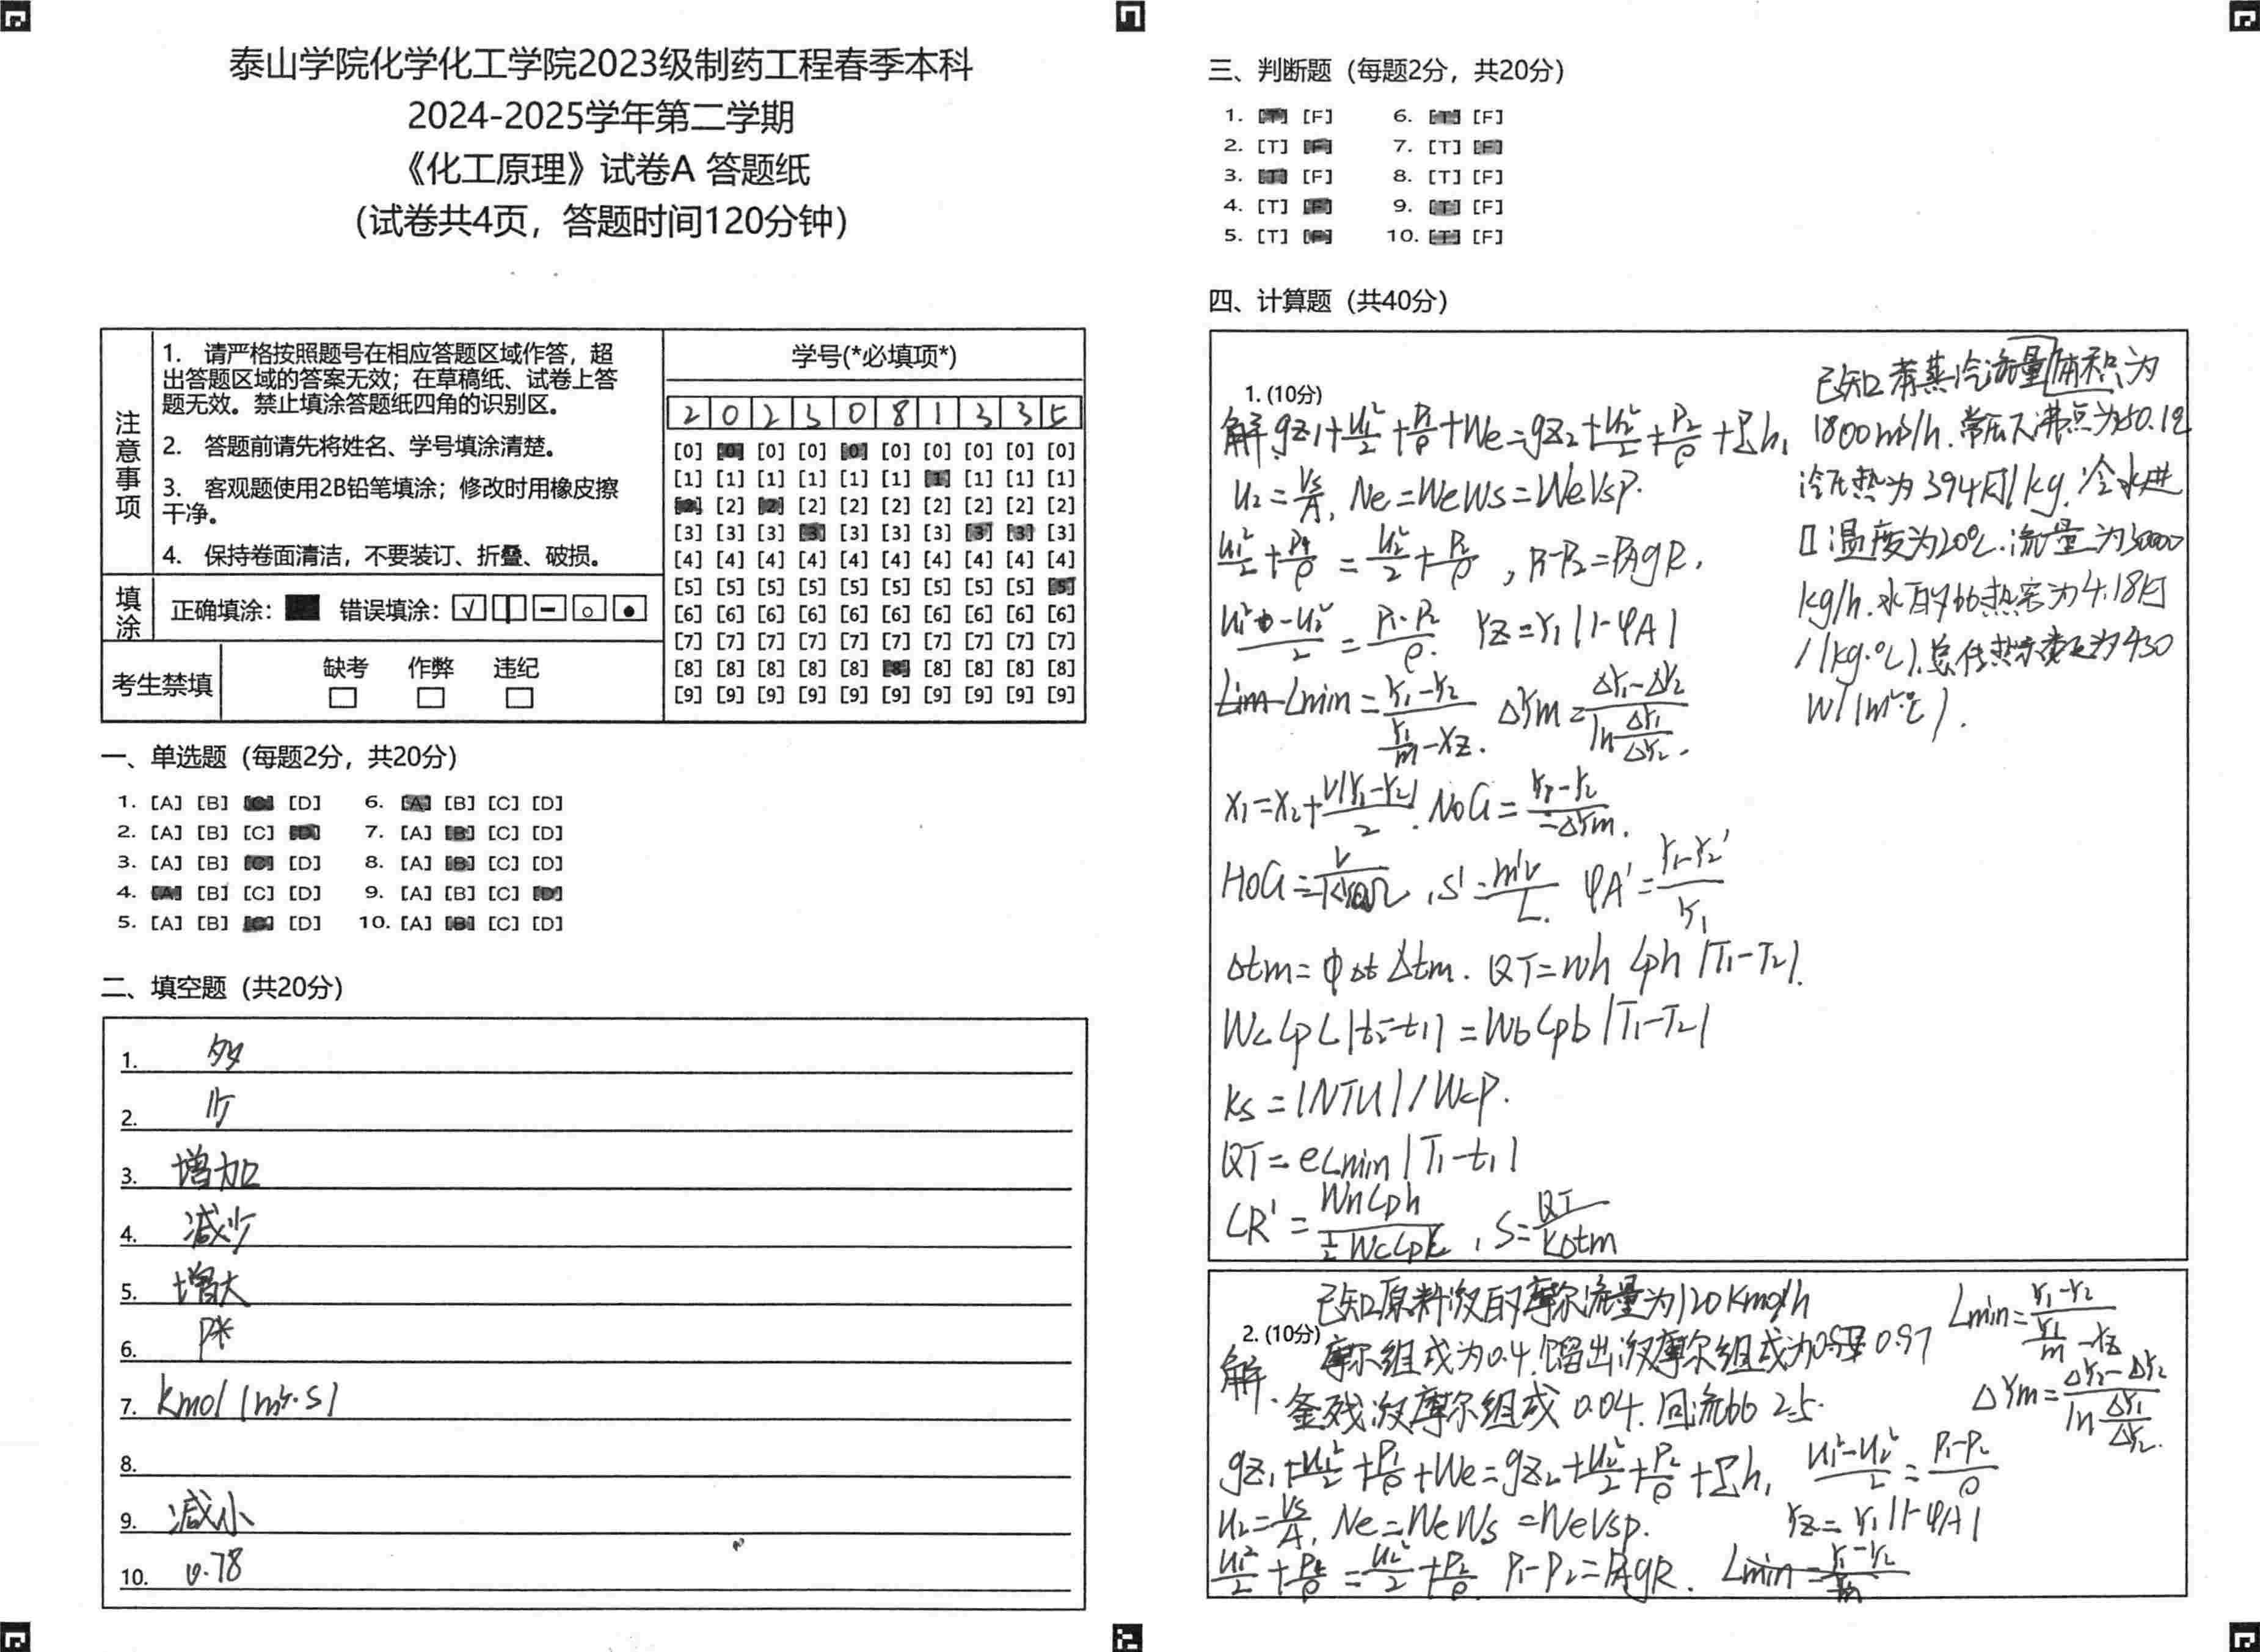 泰山学院化学化工学院2023级制药工程春季本科
2024-2025学年第二学期
《化工原理》试卷A 答题纸
(试卷共4页，答题时间120分钟)
注意事项
1. 请严格按照题号在相应答题区域作答，超
出答题区域的答案无效；在草稿纸、试卷上答
题无效。禁止填涂答题纸四角的识别区。
2. 答题前请先将姓名、学号填涂清楚。
3. 客观题使用2B铅笔填涂；修改时用橡皮擦
干净。
4. 保持卷面清洁，不要装订、折叠、破损。
填涂
正确填涂： 错误填涂：
考生禁填
缺考 作弊 违纪
学号(*必填项*)
2 0 2 3 0 8 1 3 3 5
[0] [0] [0] [0] [0] [0] [0] [0] [0] [0]
[1] [1] [1] [1] [1] [1] [1] [1] [1] [1]
[2] [2] [2] [2] [2] [2] [2] [2] [2] [2]
[3] [3] [3] [3] [3] [3] [3] [3] [3] [3]
[4] [4] [4] [4] [4] [4] [4] [4] [4] [4]
[5] [5] [5] [5] [5] [5] [5] [5] [5] [5]
[6] [6] [6] [6] [6] [6] [6] [6] [6] [6]
[7] [7] [7] [7] [7] [7] [7] [7] [7] [7]
[8] [8] [8] [8] [8] [8] [8] [8] [8] [8]
[9] [9] [9] [9] [9] [9] [9] [9] [9] [9]
一、单选题（每题2分，共20分）
1. [A] [B] [C] [D] 6. [A] [B] [C] [D]
2. [A] [B] [C] [D] 7. [A] [B] [C] [D]
3. [A] [B] [C] [D] 8. [A] [B] [C] [D]
4. [A] [B] [C] [D] 9. [A] [B] [C] [D]
5. [A] [B] [C] [D] 10. [A] [B] [C] [D]
二、填空题（共20分）
1. 多
2. 少
3. 增加
4. 减少
5. 增大
6. P*
7. kmol/(m²·s)
8.
9. 减小
10. 0.78
三、判断题（每题2分，共20分）
1. [T] [F] 6. [T] [F]
2. [T] [F] 7. [T] [F]
3. [T] [F] 8. [T] [F]
4. [T] [F] 9. [T] [F]
5. [T] [F] 10. [T] [F]
四、计算题（共40分）
1. (10分)
解 gz₁+u₁²/2+P₁/ρ+We=gz₂+u₂²/2+P₂/ρ+Σh,
u₂=Vs/A, Ne=WeWs=WeVsρ.
u₁²/2+P₁/ρ=u₂²/2+P₂/ρ, P₁-P₂=ρAgR,
(u₁²-u₂²)/2=(P₁-P₂)/ρ. Y₂=Y₁(1-φA)
Lmin=(Y₁-Y₂)/(Y₁/m-X₂). ΔYm=(ΔY₁-ΔY₂)/ln(ΔY₁/ΔY₂).
X₁=X₂+V(Y₁-Y₂)/2. NOG=(Y₁-Y₂)/ΔYm.
HOG=V/KYaΩ, S'=m'V/L. φA'=(Y₁-Y₂')/Y₁
Δtm=φΔtΔ'tm. QT=Wh Cph(T₁-T₂).
WcCpc(t₂-t₁)=WhCph(T₁-T₂)
Ks=(NTU)/WcP.
QT=eCmin(T₁-t₁)
CR'=WhCph/½WcCpc, S=QT/KΔtm
已知苯蒸冷流量体积为
1800m³/h. 常压下沸点为80.1℃
冷压热为394kJ/kg, 冷水进
口温度为20℃.流量为30000
kg/h.水的比热容为4.18kJ
/(kg·℃).总传热系数为450
W/(m²·℃).
2. (10分)
已知原料液的摩尔流量为120kmol/h
摩尔组成为0.4.馏出液摩尔组成为0.97
解. 釜残液摩尔组成0.04.回流比2.5.
Lmin=(Y₁-Y₂)/(Y₁/m-X₂)
ΔYm=(ΔY₁-ΔY₂)/ln(ΔY₁/ΔY₂).
gz₁+u₁²/2+P₁/ρ+We=gz₂+u₂²/2+P₂/ρ+Σh, (u₁²-u₂²)/2=(P₁-P₂)/ρ
u₂=Vs/A, Ne=WeWs=WeVsρ. Y₂=Y₁(1-φA)
u₁²/2+P₁/ρ=u₂²/2+P₂/ρ P₁-P₂=ρAgR.